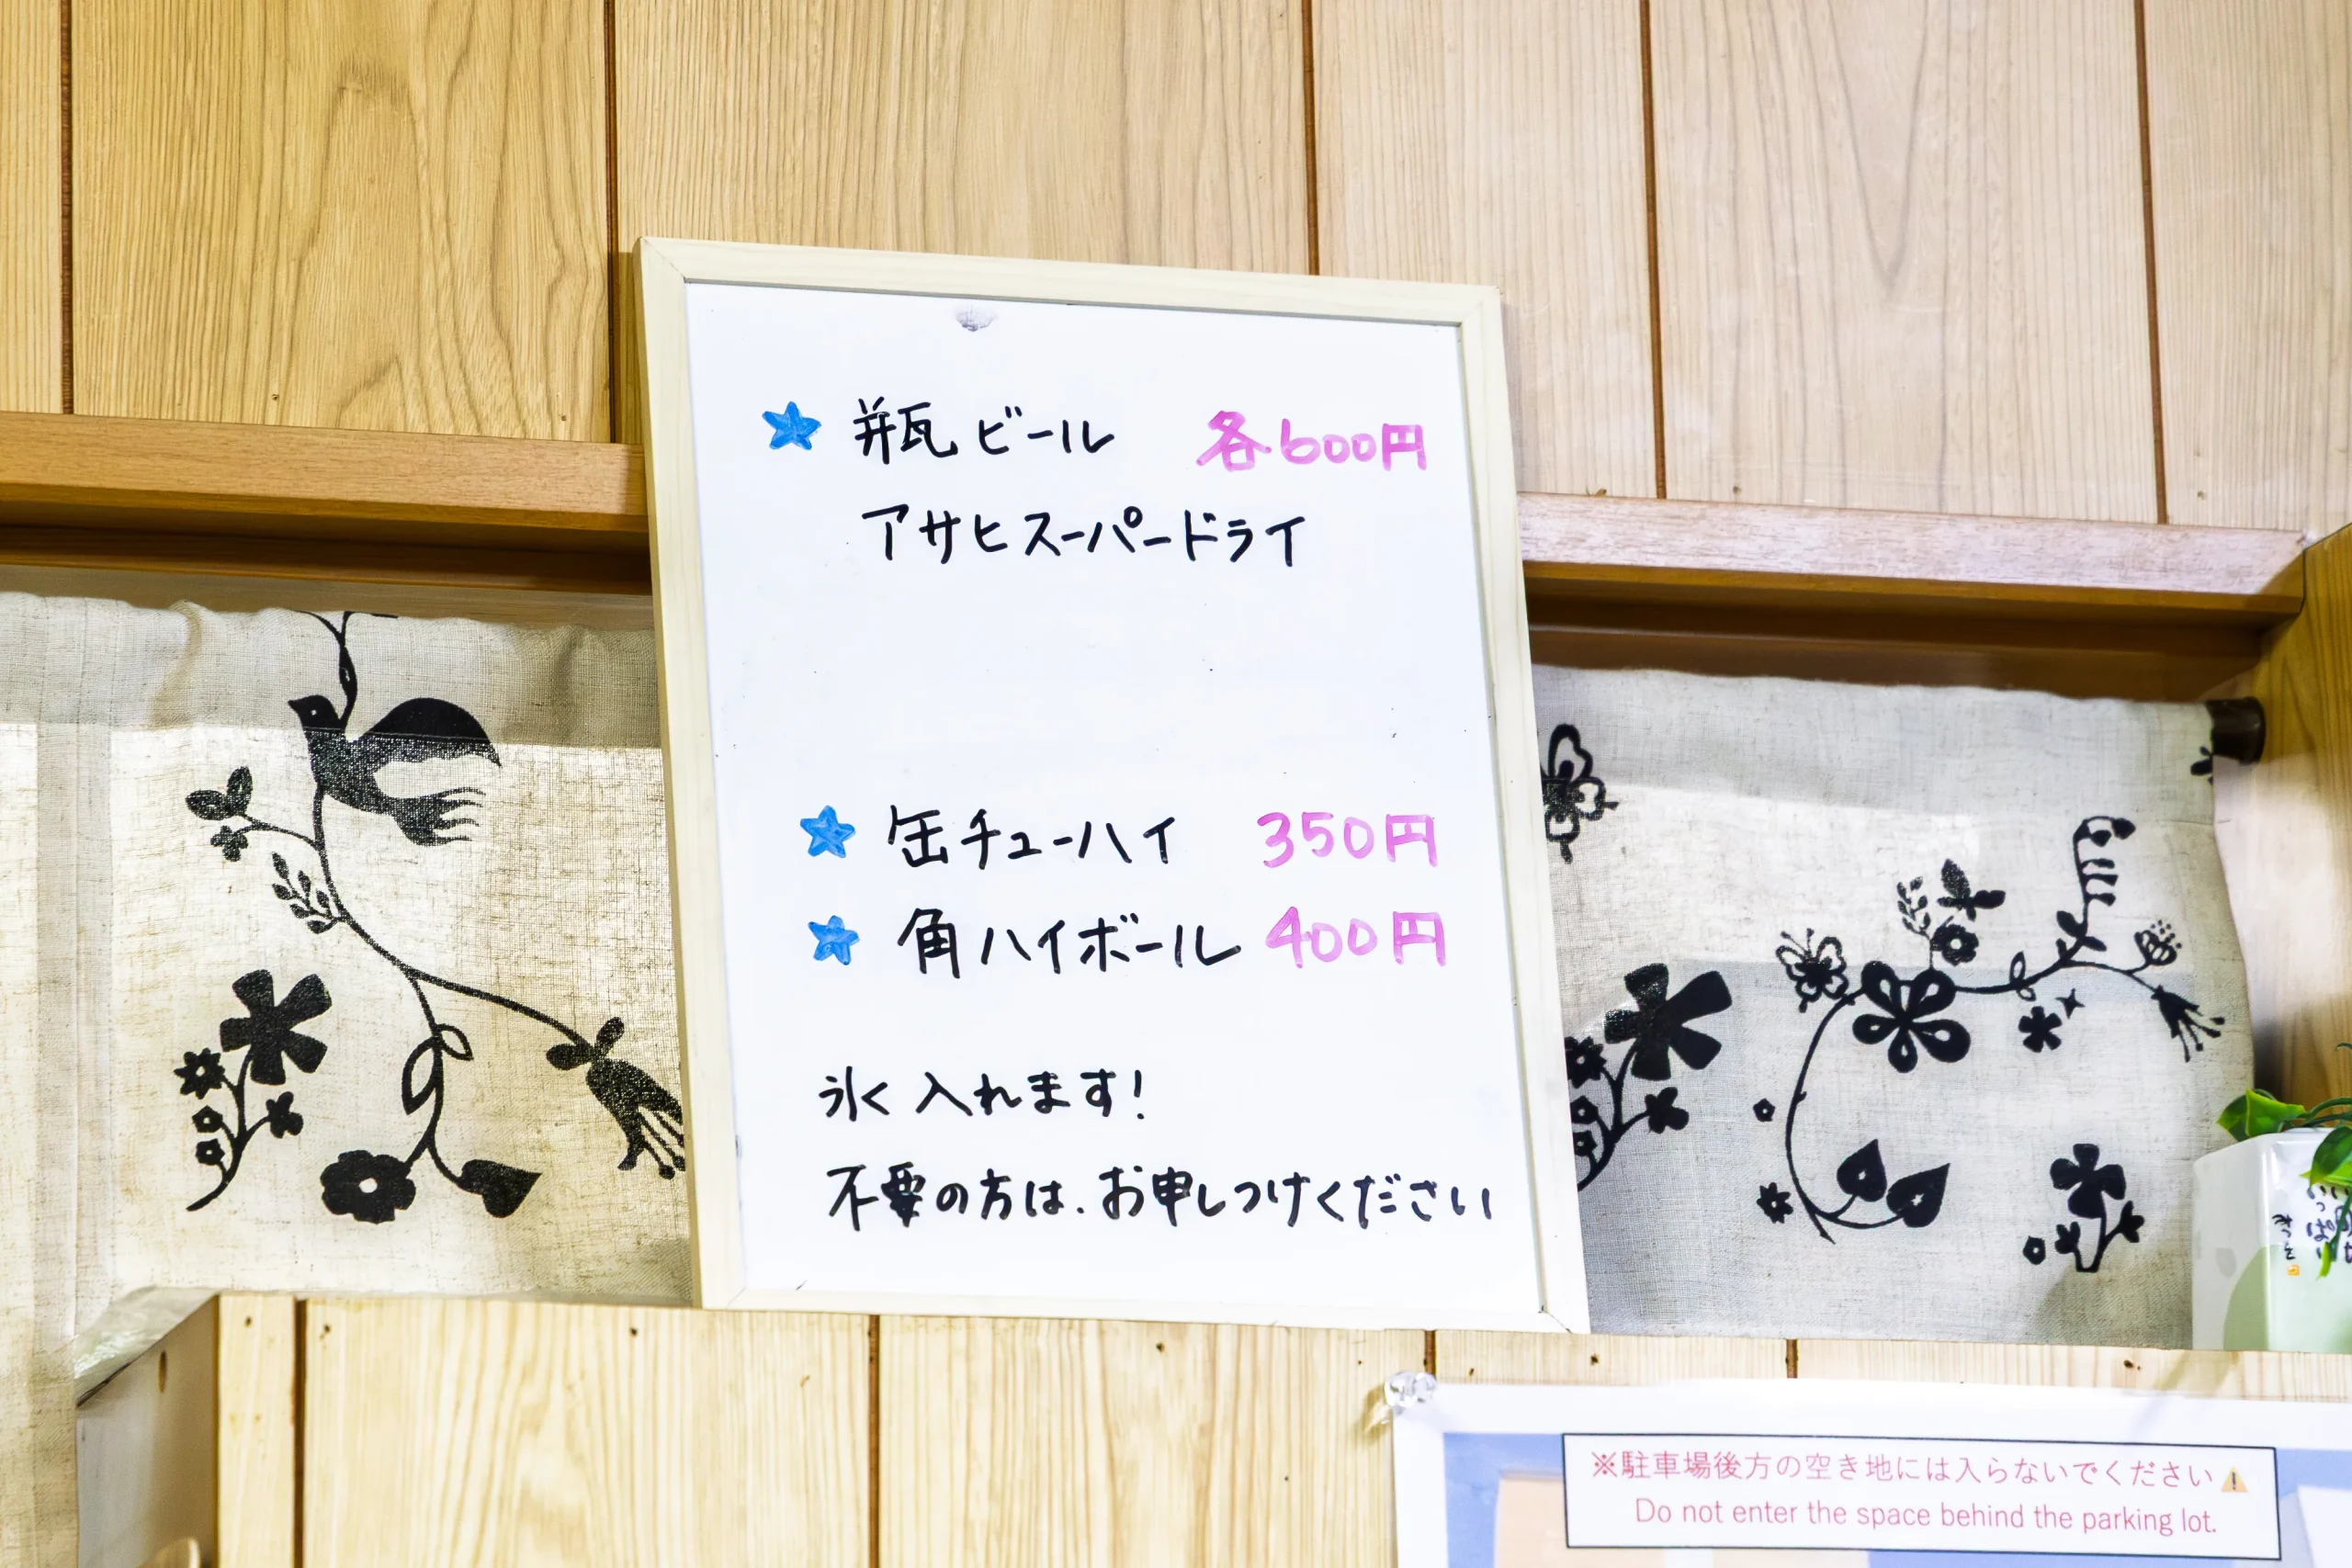 瓶ビール 各600円
アサヒスーパードライ
缶チューハイ 350円
角ハイボール 400円
氷入れます!
不要の方は、お申しつけください
※駐車場後方の空き地には入らないでください
Do not enter the space behind the parking lot.